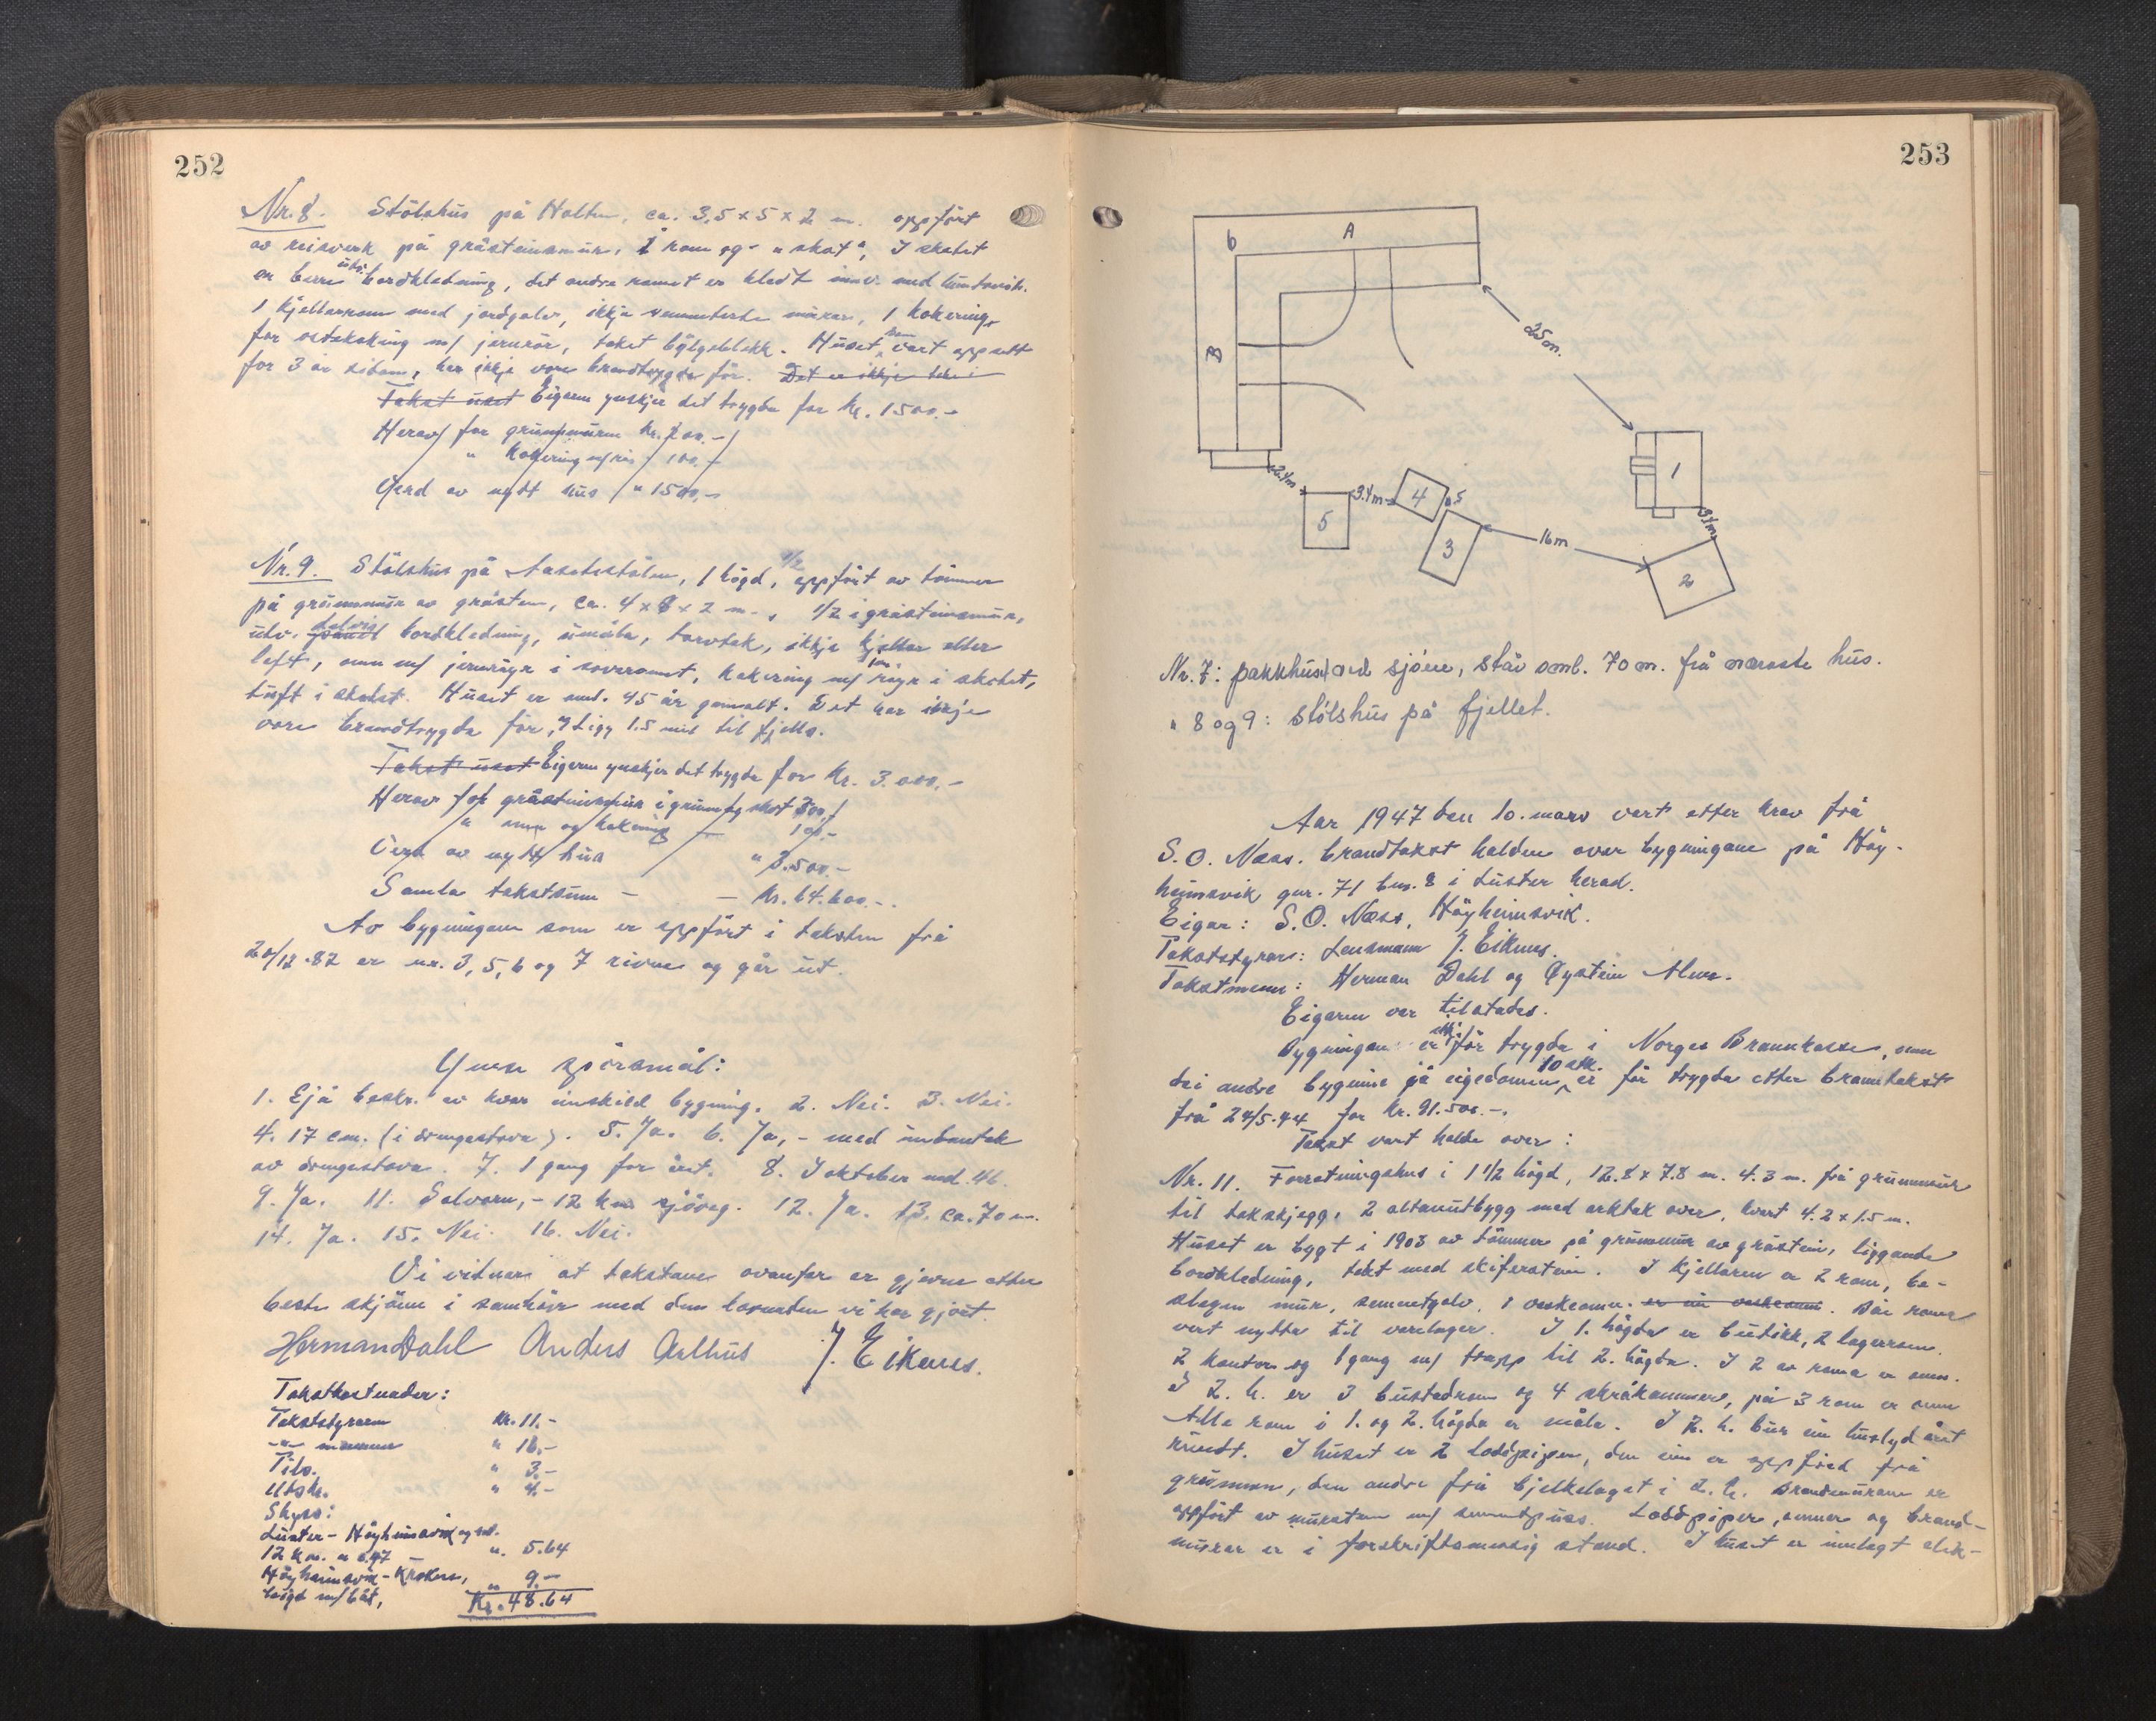 252
Nr. 8. Stölshus på Holten, ca. 3,5 x 5 x 2 m. oppfört
av reisverk på gråsteinsmur, 1 rom og "skot", I skotet
er berre utv. bordkledning, det andre romet er kledt innv. med
1 kjellarrom med jordgolv, ikkje sementerte murar, 1 kokering
for ostekoking m/ jernrör, taket bölgeblekk. Huset som vart oppsett
for 3 år sidan, har ikkje vore brandtrygda för. Det er ikkje teke i
Takst uset Eigaren ynskjer det trygda for kr. 1500.-
Herav for grunnmuren kr. 200.-
" kokering m/rör 100.-
Verd av nytt hus " 1500.-
Nr. 9. Stölshus på Aasetestölen, 1 högd, 1/2 oppfört av tömmer
på grunnmur av gråstein, ca. 4 x 8 x 2 m., 1/2 i gråsteinsmur,
utv. delvis bordkledning, umåla, torvtak, ikkje kjellar eller
loft, omn m/ jernröyr i soveromet, kokering m/ jm. röyr i skotet,
tuft i skotet. Huset er uml. 45 år gamalt. Det har ikkje
vore brandtrygda för, ligg 1.5 mil til fjells.
Takst uset Eigaren ynskjer det trygda for kr. 3.000.-
Herav for gråsteinsmur i grunn og skot 300.-
" omn og kokering - 100.-
Verd av nytt hus " 3.500.-
Samla takstsum - - kr. 64.600.-.
Av bygningane som er oppfört i taksten frå
20/12.82 er nr. 3, 5, 6 og 7 rivne og går ut.
Ymse spörsmål:
1. Sjå beskr. av kvar einskild bygning. 2. Nei. 3. Nei.
4. 17 cm. (i drengestova). 5. Ja. 6. Ja, - med unntak
av drengestova. 7. 1 gang for året. 8. I oktober md. 46.
9. Ja. 11. Solvorn, - 12 km sjöveg. 12. Ja. 13. ca. 70 m.
14. Ja. 15. Nei. 16. Nei.
Vi vitnar at takstane ovanfor er gjevne etter
beste skjönn i samhöve med den lovnaden vi har gjort.
Herman Dahl Anders Aalhus J. Eiknes.
Takstkostnader:
Takststyraren kr. 11.-
-"- mennene " 16.-
Tils. " 3.-
Utskr. " 4.-
Skyss:
Luster - Höyheimsvik og ret.
12 km. a 0.47 " 5.64
Höyheimsvik - Kroken,
leigd m/båt, " 9.-
Kr. 48.64
253
6 A
B
25 m.
1
2.4m
3.4m
4
0.5
5
3
16m
3.4m
2
Nr. 7: pakkhuset ved sjöen, står oml. 70 m. frå næraste hus.
" 8 og 9: stölshus på fjellet.
Aar 1947 den 10. mars vart etter krav frå
S. O. Næss. brandtakst halden over bygningane på Höy-
heimsvik gnr. 71 bnr. 8 i Luster herad.
Eigar: S. O. Næss, Höyheimsvik.
Takststyrar: Lensmann J. Eiknes.
Takstmenn: Herman Dahl og Öystein Alme.
Eigaren var tilstades.
Bygningane er ikkje för trygda i Norges Brannkasse, men
dei andre bygninne på eigedomen 10 stk. er för trygda etter branntakst
frå 24/5.44 for kr. 91.500.-.
Takst vart halde over:
Nr. 11. Forretningshus i 1 1/2 högd, 12.8 x 7.8 m. 4.3 m. frå grunnmur
til takskjegg, 2 altanutbygg med arktak over, kvart 4.2 x 1.5 m.
Huset er bygt i 1903 av tömmer på grunnmur av gråstein, liggande
bordkledning, tekt med skiferstein. I kjellaren er 2 rom, be-
slegen mur, sementgolv, 1 vaskeomn. er ein vaskeomn. Dei roma
vert nytta til varelager. I 1. högda er butikk, 2 lagerrom.
2 kontor og 1 gang m/ trapp til 2. högda. I 2 av roma er omn.
I 2. h. er 3 bustadrom og 4 skråkammers, på 3 rom er omn
Alle rom i 1. og 2. högda er måla. I 2. h. bur ein huslyd året
rundt. I huset er 2 loddpiper, den eine er oppförd frå
grunnen, den andre frå bjelkelaget i 2. h. Brandmurane er
oppfört av murstein m/ sementpuss. Loddpiper, omner og brand-
murar er i forskriftsmessig stand. I huset er innlagt elek-